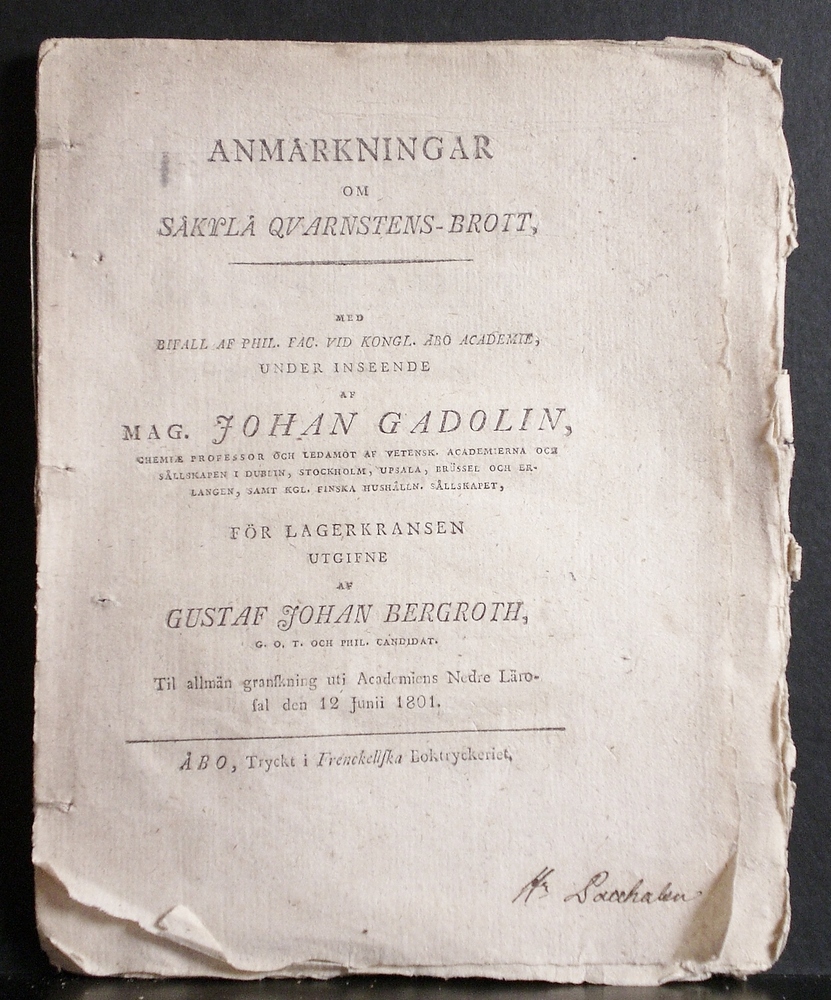 ANMÄRKNINGAR
OM
SÄKYLÄ QVARNSTENS-BROTT,
MED
BIFALL AF PHIL. FAC. VID KONGL. ÅBO ACADEMIE,
UNDER INSEENDE
AF
MAG. JOHAN GADOLIN,
CHEMIÆ PROFESSOR OCH LEDAMOT AF VETENSK. ACADEMIERNA OCH
SÄLLSKAPEN I DUBLIN, STOCKHOLM, UPSALA, BRÜSSEL OCH ER-
LANGEN, SAMT KGL. FINSKA HUSHÅLLN. SÄLLSKAPET,
FÖR LAGERKRANSEN
UTGIFNE
AF
GUSTAF JOHAN BERGROTH,
G. O. T. OCH PHIL. CANDIDAT.
Til allmän granſkning uti Academiens Nedre Läro-
ſal den 12 Junii 1801.
ÅBO, Tryckt i Frenckellſka Boktryckeriet,
Hr